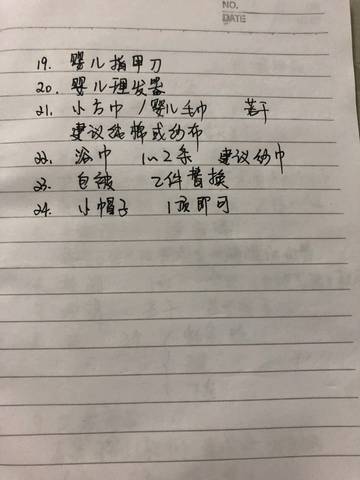 NO.
DATE
19. 婴儿指甲刀
20. 婴儿理发器
21. 小方巾 / 婴儿毛巾 若干
建议纯棉或纱布
22. 浴巾 1~2条 建议纱巾
23. 包被 2件替换
24. 小帽子 1顶即可